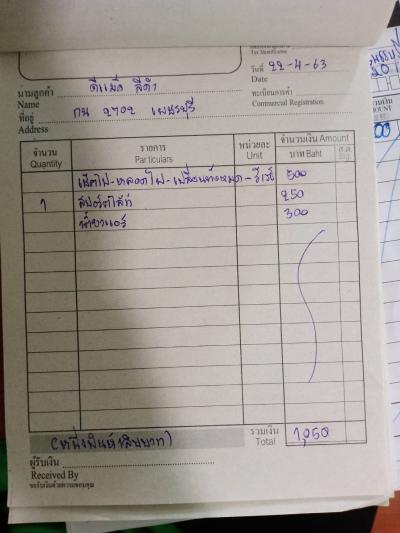 Tax Identification
วันที่ 22-4-63
Date
นามลูกค้า ดีแม็ค สีดำ
Name
ทะเบียนการค้า
Commercial Registration
ที่อยู่ กน 2702 เพชรบุรี
Address
จำนวน รายการ หน่วยละ จำนวนเงิน Amount
Quantity Particulars Unit บาท Baht ส.ต. Stg.
เช็คไฟ-หลอดไฟ-เปลี่ยนทั้งหมด- 500
1 สปอร์ตไลท์ 250
น้ำยาแอร์ 300
(หนึ่งพันห้าสิบบาท) รวมเงิน Total 1,050
ผู้รับเงิน
Received By
ขอรับเงินด้วยความขอบคุณ